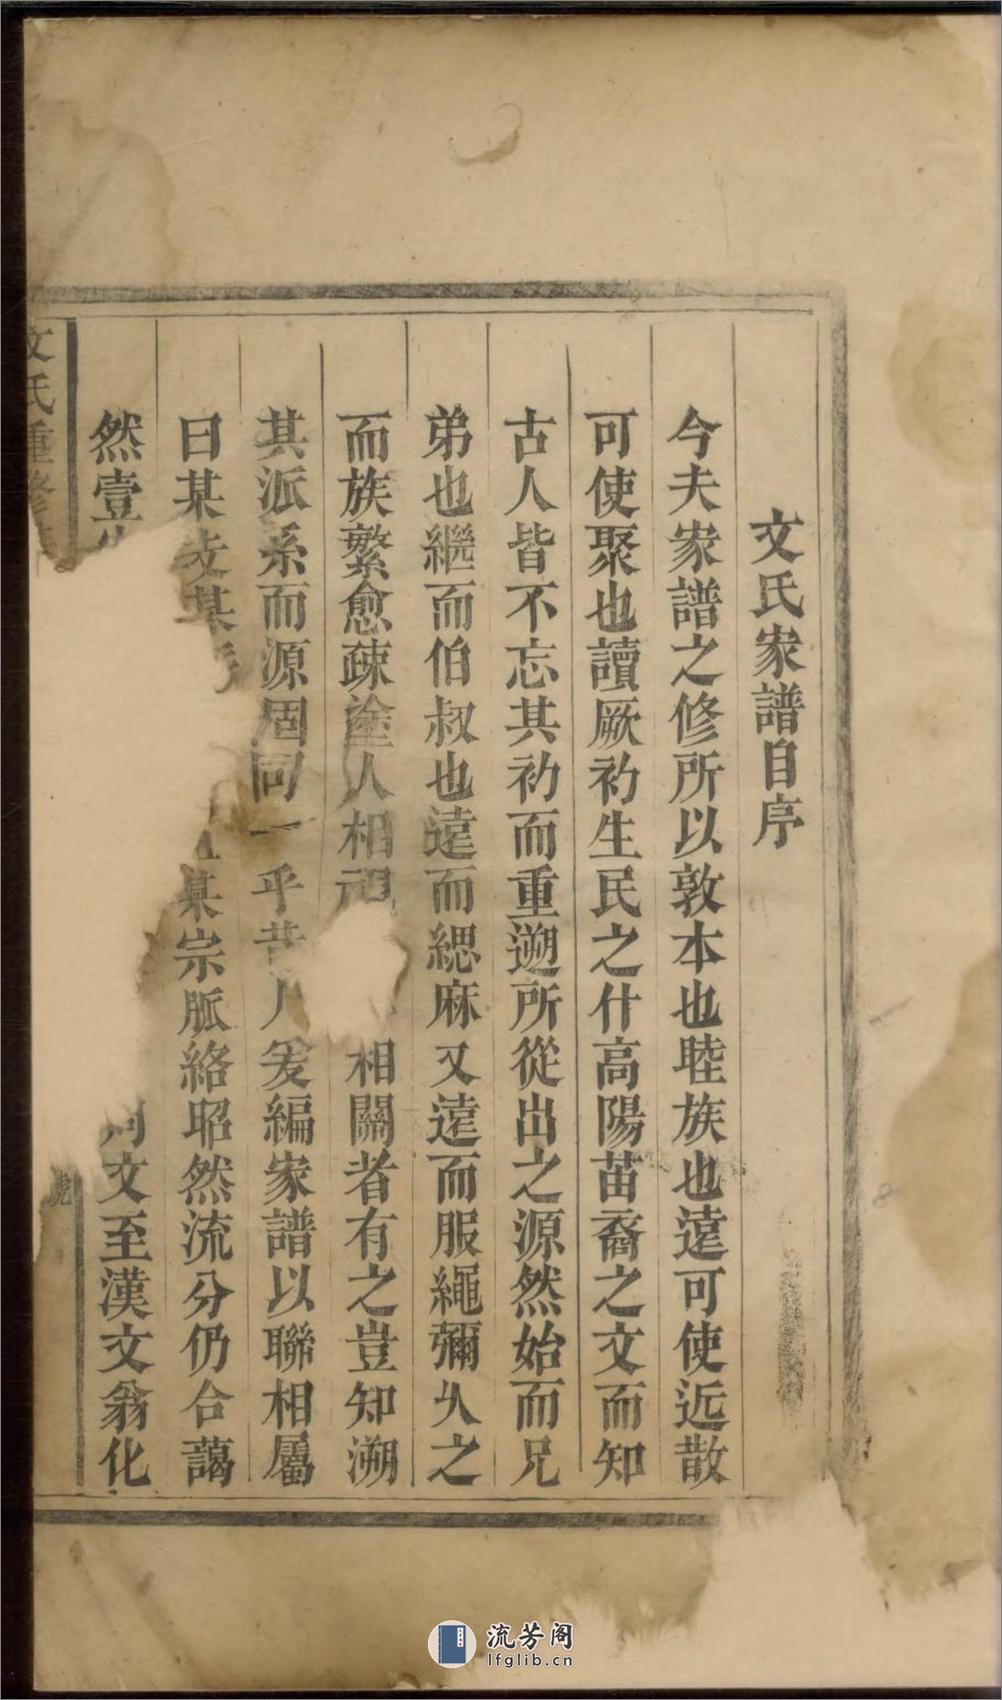 文氏家譜自序
今夫家譜之修所以敦本也睦族也遠可使近散
可使聚也讀厥初生民之什高陽苗裔之文而知
古人皆不忘其初而重遡所從出之源然始而兄
弟也繼而伯叔也遠而緦麻又遠而服繩彌乆之
而族繁愈疎塗人相視相關者有之豈知溯
其派系而源固同一乎昔人爰編家譜以聯相屬
曰某支某某宗脈絡昭然流分仍合藹
然壹文至漢文翁化
文氏重修
流芳阁
lfglib.cn